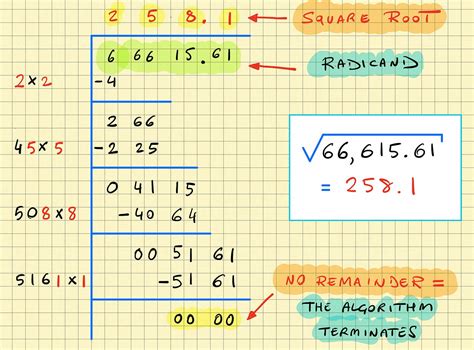 2 5 8.1 ← SQUARE ROOT
6 66 15.61 ← RADICAND
2×2 -4
2 66
45×5 -2 25
√66,615.61
= 258.1
0 41 15
508×8 -40 64
00 51 61
5161×1 -51 61
NO REMAINDER =
00 00
THE ALGORITHM
TERMINATES